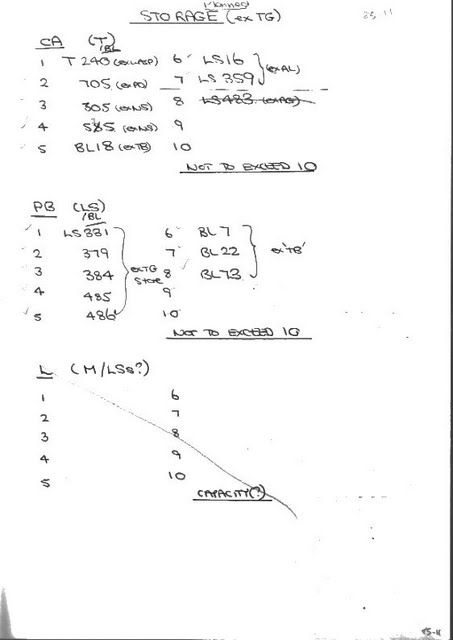 Planned
STORAGE (ex TG)
25·11
CA (T)
/BL
1 T 240 (ex LASP) 6 LS16
2 705 (ex PO) 7 LS 359 (ex AL)
3 305 (ex NS) 8 LS483 (ex AG)
4 585 (ex NS) 9
5 BL18 (ex TB) 10
NOT TO EXCEED 10
PB (LS)
/BL
1 LS 331 6 BL7
2 379 7 BL22 ex 'TB'
3 384 ex TG Store 8 BL73
4 485 9
5 486 10
NOT TO EXCEED 10
L (M/LSs?)
1 6
2 7
3 8
4 9
5 10
CAPACITY(?)